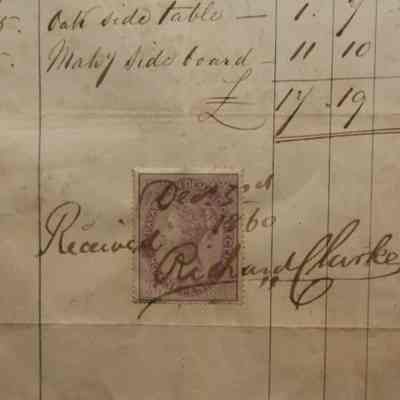 5. Oak side table — 1. 7
5. Mahy side board — 11 10
£ 17. 19
Decr 3rd
1860
Received
Richard Clarke